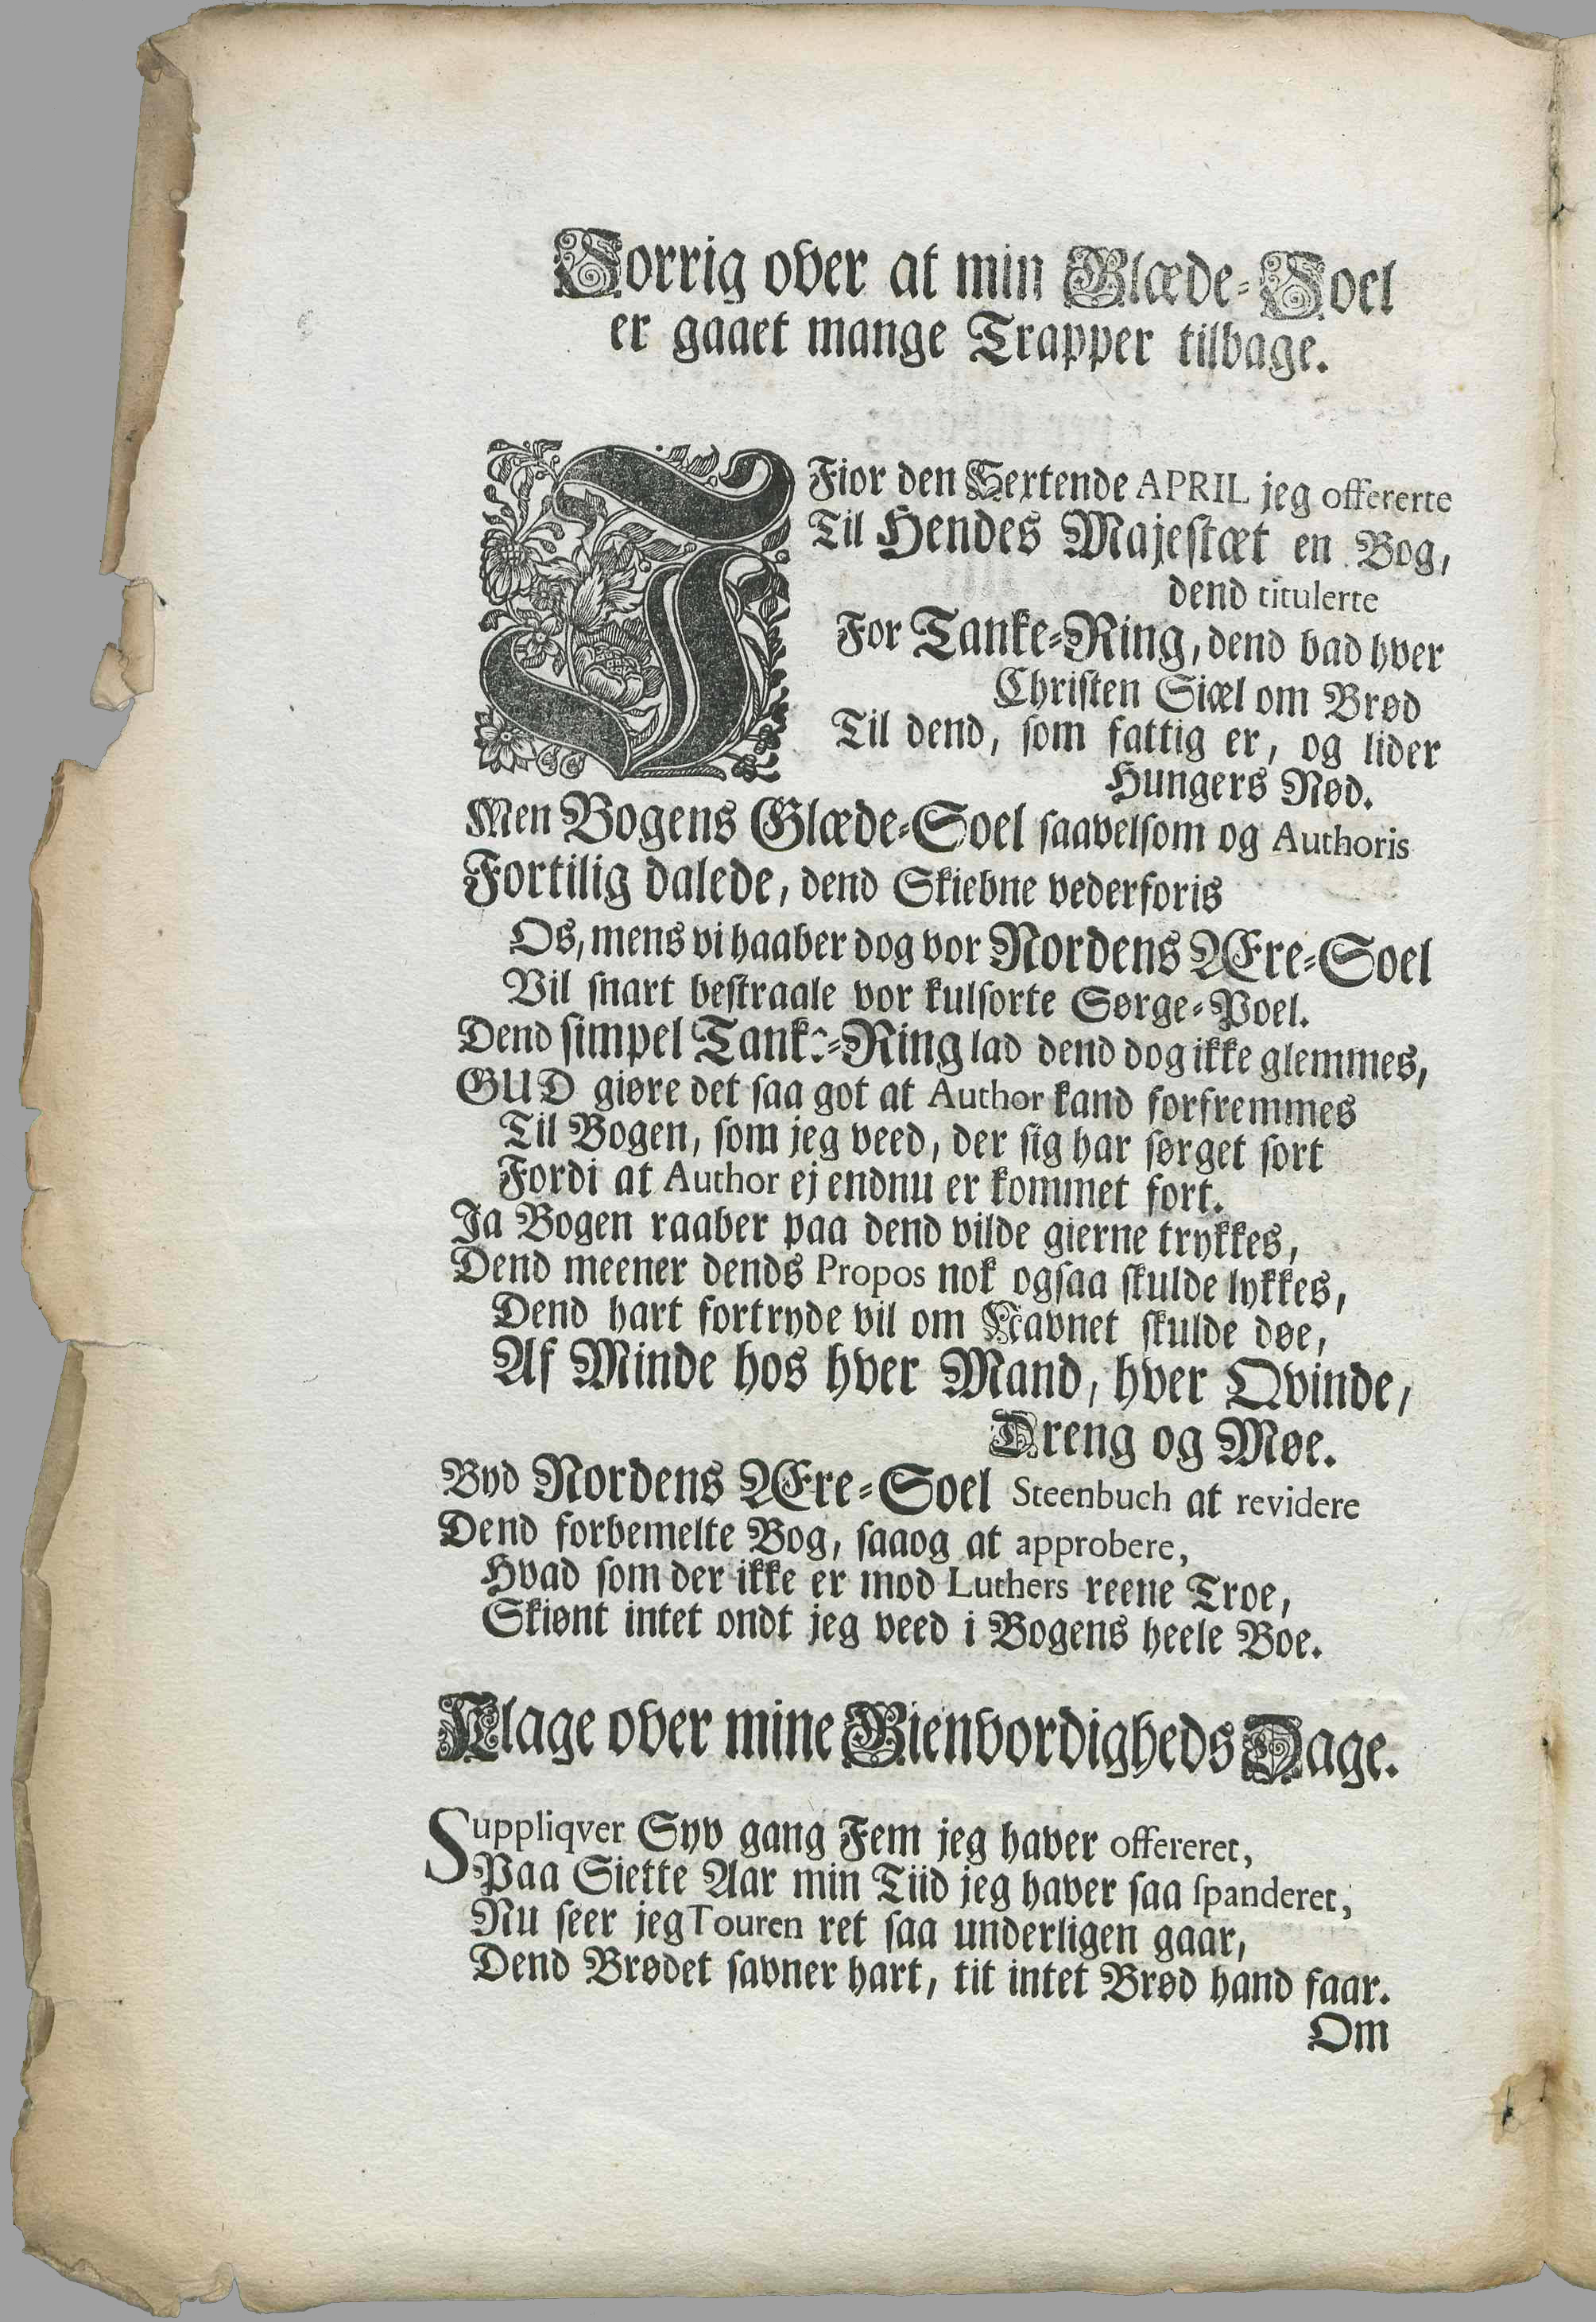 Sorrig over at min Glæde-Soel
er gaaet mange Trapper tilbage.
I Fior den Sextende APRIL jeg offererte
Til Hendes Majestæt en Bog,
dend titulerte
For Tanke-Ring, dend bad hver
Christen Siæl om Brød
Til dend, som fattig er, og lider
Hungers Nød.
Men Bogens Glæde-Soel saavelsom og Authoris
Fortilig dalede, dend Skiebne vederforis
Os, mens vi haaber dog vor Nordens Ære-Soel
Vil snart bestraale vor kulsorte Sørge-Poel.
Dend simpel Tanke-Ring lad dend dog ikke glemmes,
GUD giøre det saa got at Author kand forfremmes
Til Bogen, som jeg veed, der sig har sørget sort
Fordi at Author ej endnu er kommet fort.
Ja Bogen raaber paa dend vilde gierne trykkes,
Dend meener dends Propos nok ogsaa skulde lykkes,
Dend hart fortryde vil om Navnet skulde døe,
Af Minde hos hver Mand, hver Qvinde,
Dreng og Møe.
Byd Nordens Ære-Soel Steenbuch at revidere
Dend forbemelte Bog, saaog at approbere,
Hvad som der ikke er mod Luthers reene Troe,
Skiønt intet ondt jeg veed i Bogens heele Boe.
Klage over mine Gienvordigheds Dage.
Suppliqver Syv gang Fem jeg haver offereret,
Paa Siette Aar min Tiid jeg haver saa spanderet,
Nu seer jeg Touren ret saa underligen gaar,
Dend Brødet savner hart, tit intet Brød hand faar.
Om